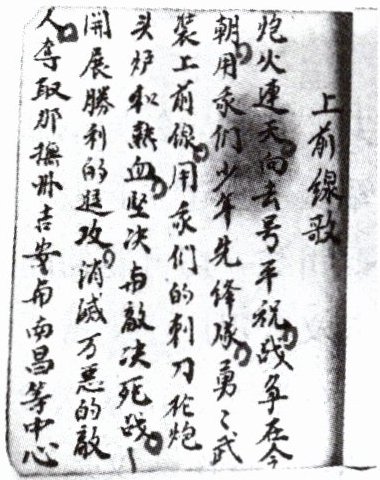 上前線歌
炮火連天向去号平祝战争在今
朝用我们少年先鋒隊勇々武
装上前線用我们的刺刀枪炮
头炉和熱血坚决与敵决死战
開展勝利的進攻消滅万恶的敵
人夺取那撫卅吉安与南昌等中心